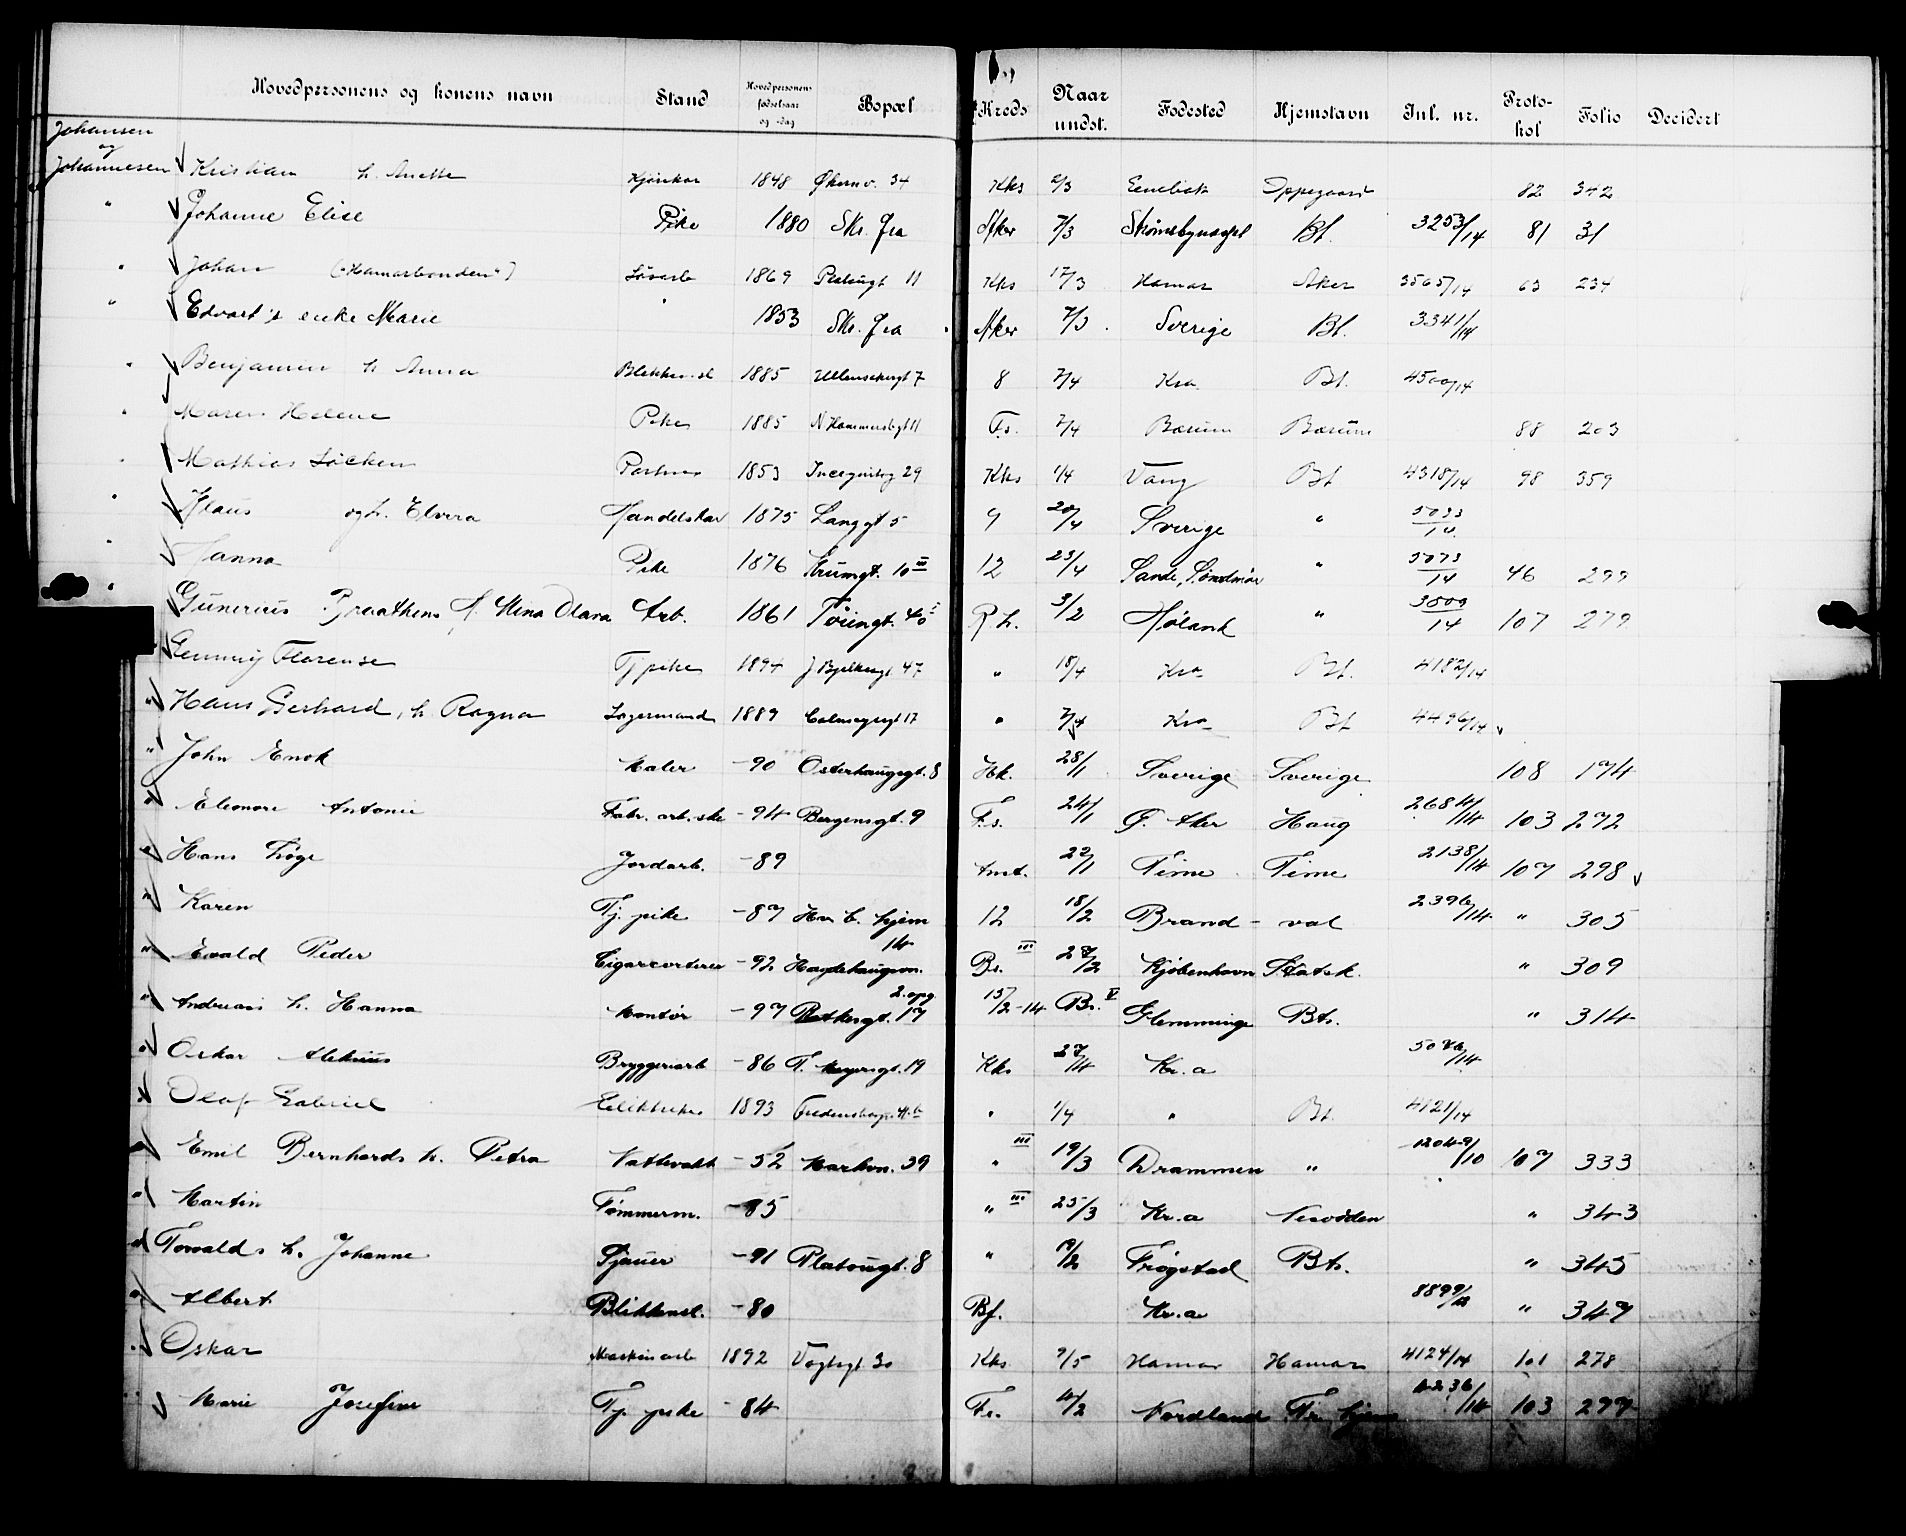 Hovedpersonens og konens navn Stand Hovedpersonens fødselsaar og -dag Bopæl Kreds Naar undst. Fødested Hjemstavn Inl. nr. Protokol Folio Decidert
Johansen
og
Johannesen Kristian h. Anette Kjørekar 1848 Økernv. 34 Kks 2/3 Enebak Oppegaard 82 342
" Johanne Elise Pike 1880 Skr. fra Aker 7/3 Bt. 3253/14 81 31
" Johan ("Hamarbonden") Løsarb 1869 Platougt 11 Kks 17/3 Hamar Aker 3565/14 63 234
" Edvart's enke Marie " 1853 Skr. fra Aker 7/3 Sverige Bt. 3341/14
" Benjamin h Anna Blikkensl 1885 Ullensakergt 7 8 7/4 Kra. Bt. 4500/14
" Maren Helene Pike 1885 N Hammersbgt 11 Fs. 7/4 Bærum Bærum 88 203
" Mathias Løcken 1853 29 Kks 1/4 Vang Bt 4318/14 98 359
" Klaus og h. Elvera Handelskar 1875 Langgt 5 9 20/4 Sverige " 5033/14
" Hanna Pike 1876 Krumgt. 10 III 12 23/4 Sande, Søndmør " 5073/14 46 299
" Gunerius Braathens H. Mina Olava Arb. 1861 Tøiengt. 40 I R.h. 3/2 Høland " 3809/14 107 279
Jenny Florense Tj pike 1894 J Bjelkesgt 47 " 18/4 Kra Bt. 4182/14
" Hans Gerhard, h Ragna Lagermand 1889 Calmeyergt 17 " 7/4 Kra Bt 4496/14
" John Enok Maler -90 Osterhaugsgt. 8 Hk. 28/1 Sverige Sverige 108 174
" Eleonore Antonie Fabr. arb.ske -94 Bergensgt. 9 Fs. 24/1 Ø. Aker Haug 2684/14 103 292
" Hans Tøge Jordarb. -89 Amt. 22/1 Time Time 2138/14 107 298
" Karen Tj. pike -87 Hv. b. hjem 12 18/2 Brand- val 2396/14 " 305
" Evald Peder Cigarsorterer -92 Hagdehaugsvn. 14 Bs. III 27/2 Kjøbenhavn Statsk. " 309
" Andreas h. Hanna Kontør -97 17 2. opg. 15/2-14 Bs. V Glemminge Bts. " 314
" Oskar Aleksius Bryggeriarb -86 T. Meyersgt. 19 Kks 27/4 Kr.a 5076/14
" Olaf Gabriel Elektriker 1893 " 1/4 " Bt. 4121/14
" Emil Bernhards h. Petra Nattevakt -52 Markvn. 39 " III 19/3 Drammen " 12049/10 107 333
" Martin Tømmerm. -85 " III 25/3 Kr.a Nesodden " 343
" Torvalds h. Johanne Sjauer -91 Platougt. 8 " 19/2 Trøgstad Bts. " 345
" Albert Blikkensl. -80 Bf. Kr.a " 349
" Oskar Maskinarb 1892 Vogtsgt 30 Kks 9/5 Hamar Hamar 4124/14 101 278
" Marie Josefine Tj. pike -84 Fs. 4/2 Nordland Fr. hjem 103 299